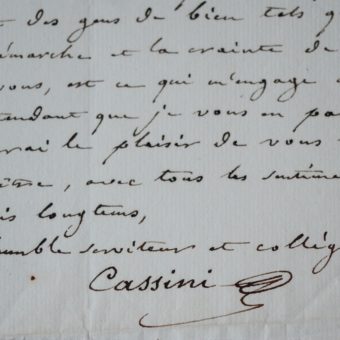 des gens de bien tels q
démarches et la crainte de
vous, est ce qui m'engage
tendant que je vous en pa
rai le plaisir de vous
avec tous les sentime
is longtems,
humble serviteur et collèg
Cassini